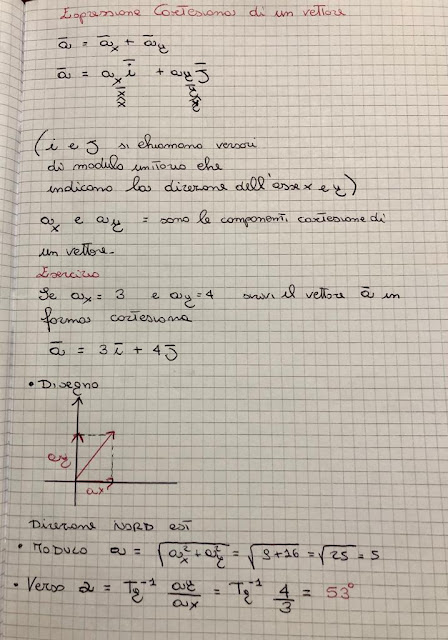 Espressione Cartesiana di un vettore
a̅ = a̅x + a̅y
a̅ = ax i̅ + ay j̅
(i e j si chiamano versori
di modulo unitario che
indicano la direzione dell'asse x e y)
ax e ay = sono le componenti cartesiane di
un vettore.
Esercizio
Se ax = 3 e ay = 4 scrivi il vettore a̅ in
forma cartesiana
a̅ = 3 i̅ + 4 j̅
• Disegno
ay
ax
Direzione NORD EST
• MODULO a = √(ax² + ay²) = √(9+16) = √25 = 5
• Verso α = Tg⁻¹ ay/ax = Tg⁻¹ 4/3 = 53°